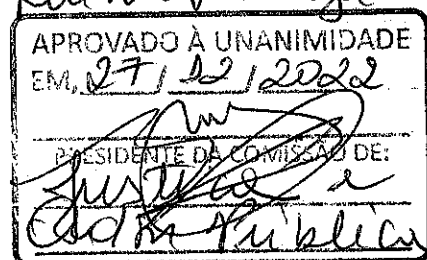 APROVADO À UNANIMIDADE
EM, 27 / 12 / 2022
PRESIDENTE DA COMISSÃO DE:
Justiça e
Pública